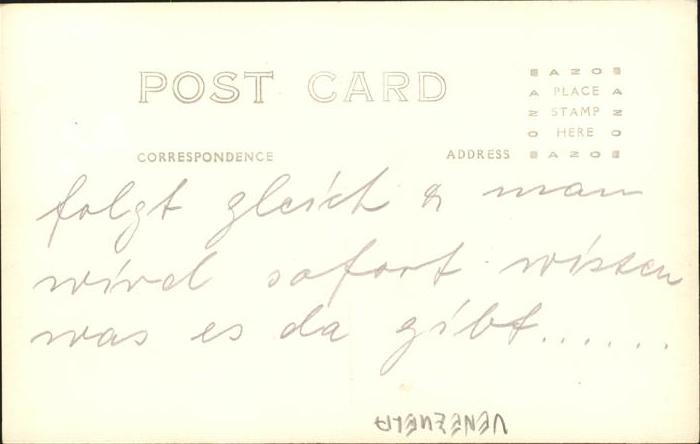 POST CARD
AZO
A PLACE A
Z STAMP Z
O HERE O
CORRESPONDENCE ADDRESS AZO
folgt gleich & man
wird sofort wissen
was es da gibt......
VENEZUELA